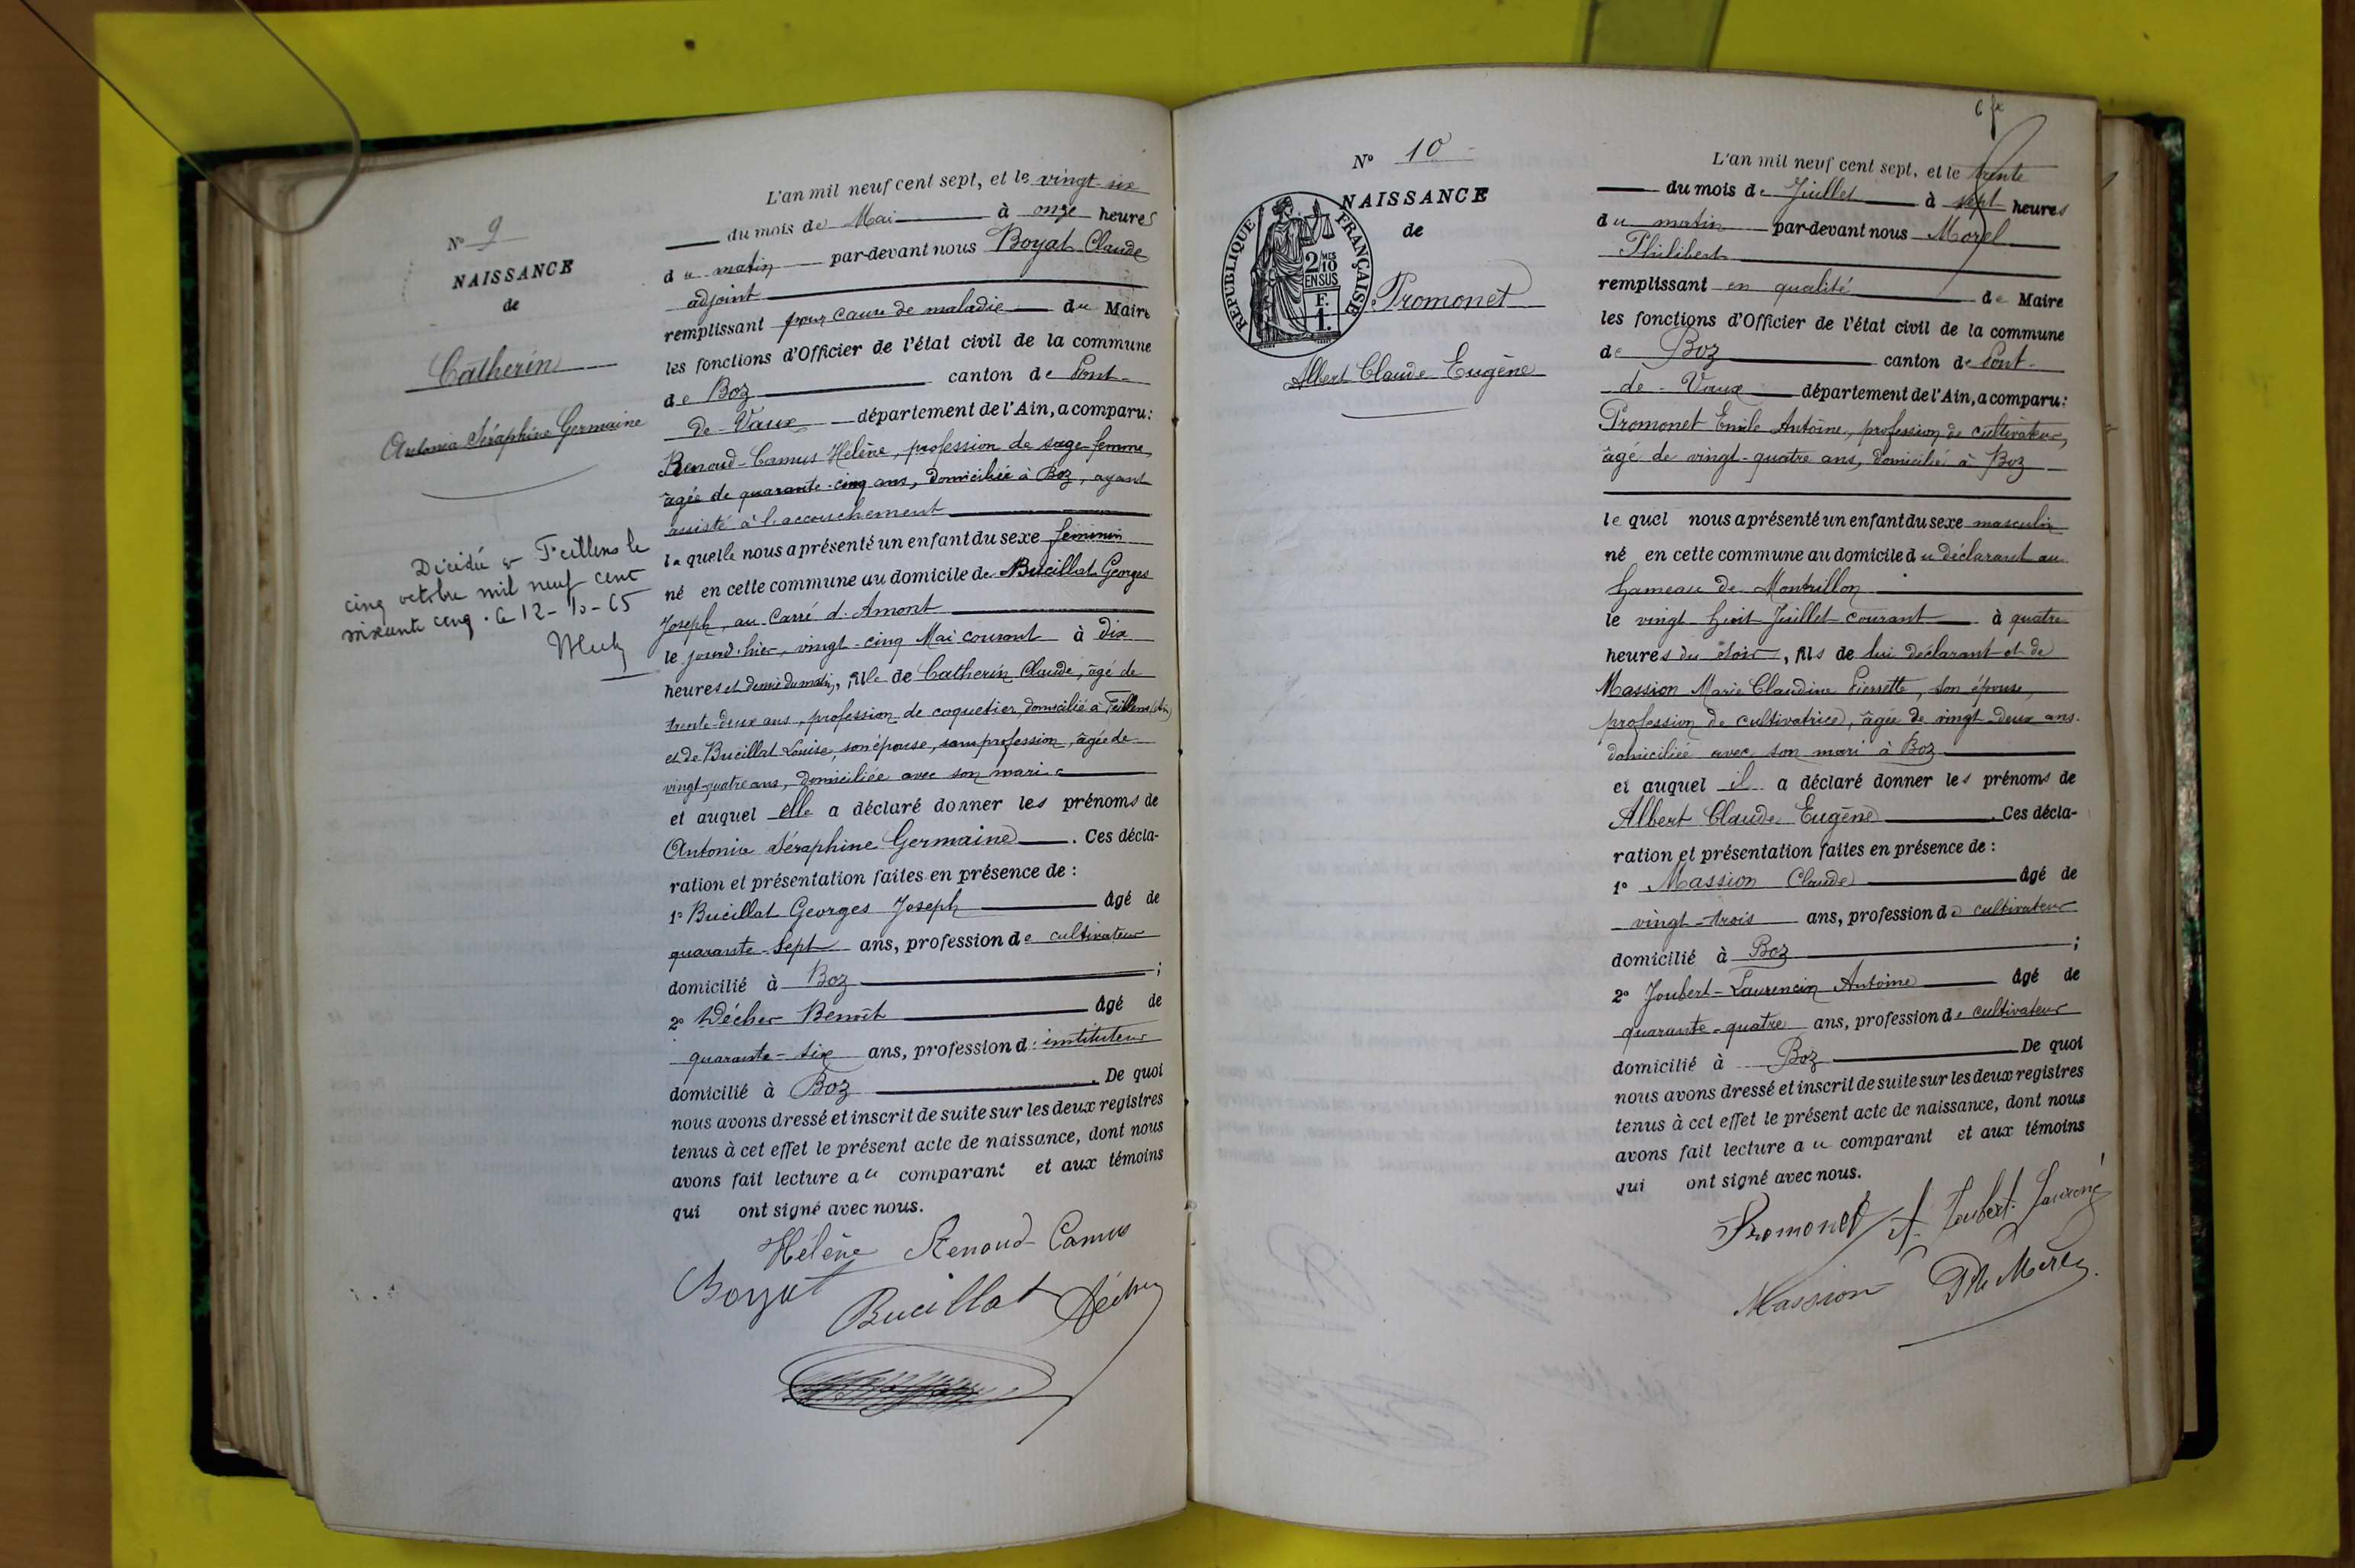 L'an mil neuf cent sept, et le vingt-six
du mois de Mai à onze heures
du matin par-devant nous Boyat Claude
adjoint
remplissant pour cause de maladie du Maire
les fonctions d'Officier de l'état civil de la commune
de Boz canton de Pont-
de-Vaux département de l'Ain, a comparu:
Renoud-Camus Hélène, profession de sage-femme,
âgée de quarante-cinq ans, domiciliée à Boz, ayant
assisté à l'accouchement
laquelle nous a présenté un enfant du sexe féminin
né en cette commune au domicile de Bucillat Georges
Joseph, au Carré d'Amont
le jourd'hier, vingt-cinq Mai courant à dix
heures et demie du matin, fille de Catherin Claude, âgé de
trente-deux ans, profession de coquetier, domicilié à Feillens (Ain)
et de Bucillat Louise, son épouse, sans profession, âgée de
vingt-quatre ans, domiciliée avec son mari
et auquel elle a déclaré donner les prénoms de
Antonia Séraphine Germaine. Ces décla-
ration et présentation faites en présence de :
1° Bucillat Georges Joseph âgé de
quarante-sept ans, profession de cultivateur
domicilié à Boz ;
2° Décher Benoît âgé de
quarante-six ans, profession d'instituteur
domicilié à Boz. De quoi
nous avons dressé et inscrit de suite sur les deux registres
tenus à cet effet le présent acte de naissance, dont nous
avons fait lecture au comparant et aux témoins
qui ont signé avec nous.
Hélène Renoud-Camus
Boyat
Bucillat Décher
N° 9
NAISSANCE
de
Catherin
Antonia Séraphine Germaine
Décidée à Feillens le
cinq octobre mil neuf cent
soixante cinq. Le 12-10-65
6
N° 10
NAISSANCE
de
RÉPUBLIQUE FRANÇAISE
2/10 MES
EN SUS
F.
1.
Promonet
Albert Claude Eugène
L'an mil neuf cent sept, et le trente
du mois de Juillet à sept heures
du matin par-devant nous Morel
Philibert
remplissant en qualité de Maire
les fonctions d'Officier de l'état civil de la commune
de Boz canton de Pont-
de-Vaux département de l'Ain, a comparu:
Promonet Emile Antoine, profession de cultivateur,
âgé de vingt-quatre ans, domicilié à Boz
lequel nous a présenté un enfant du sexe masculin
né en cette commune au domicile du déclarant au
hameau de Montrillon
le vingt-huit Juillet courant à quatre
heures du soir, fils de lui déclarant et de
Massion Marie Claudine Pierrette, son épouse,
profession de cultivatrice, âgée de vingt-deux ans.
domiciliée avec son mari à Boz
et auquel il a déclaré donner les prénoms de
Albert Claude Eugène. Ces décla-
ration et présentation faites en présence de :
1° Massion Claude âgé de
vingt-trois ans, profession de cultivateur
domicilié à Boz ;
2° Joubert-Laurencin Antoine âgé de
quarante-quatre ans, profession de cultivateur
domicilié à Boz De quoi
nous avons dressé et inscrit de suite sur les deux registres
tenus à cet effet le présent acte de naissance, dont nous
avons fait lecture au comparant et aux témoins
qui ont signé avec nous.
Promonet A. Joubert-
Massion Ph Morel